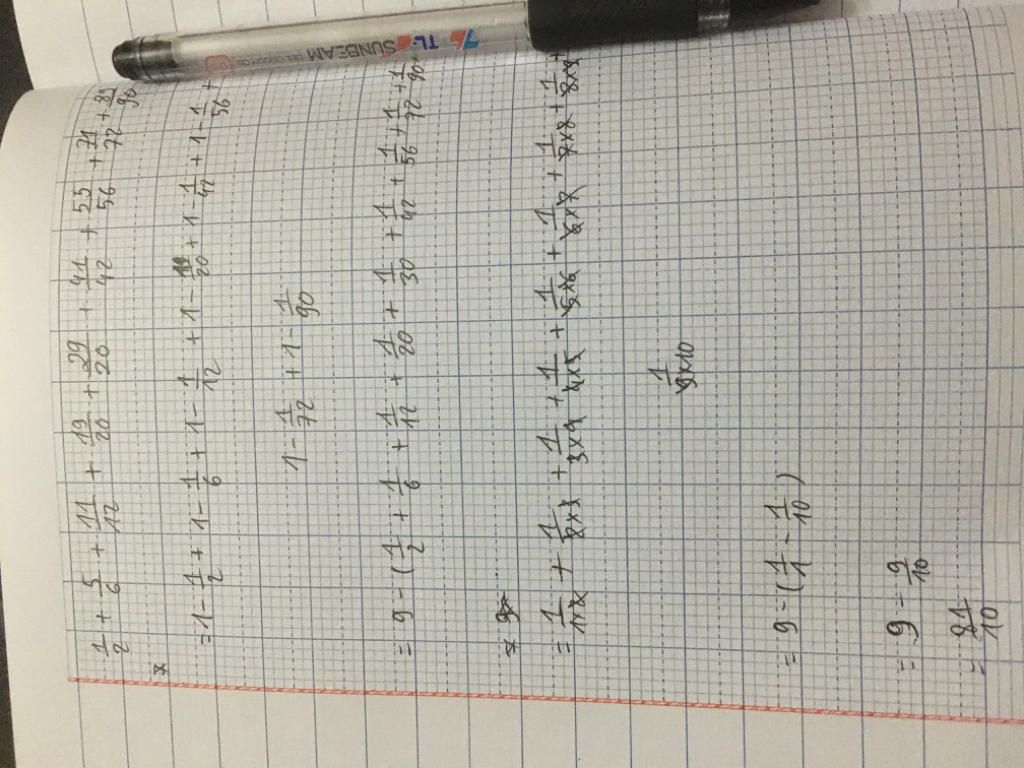 TL SUNBEAM
1/2 + 5/6 + 11/12 + 19/20 + 29/20 + 41/42 + 55/56 + 71/72 + 89/90
= 1 - 1/2 + 1 - 1/6 + 1 - 1/12 + 1 - 1/20 + 1 - 1/42 + 1 - 1/56 +
1 - 1/72 + 1 - 1/90
= 9 - (1/2 + 1/6 + 1/12 + 1/20 + 1/30 + 1/42 + 1/56 + 1/72 + 1/90
= 1/1x2 + 1/2x3 + 1/3x4 + 1/4x5 + 1/5x6 + 1/6x7 + 1/7x8 + 1/8x9 +
1/9x10
= 9 - (1/1 - 1/10)
= 9 - 9/10
= 81/10